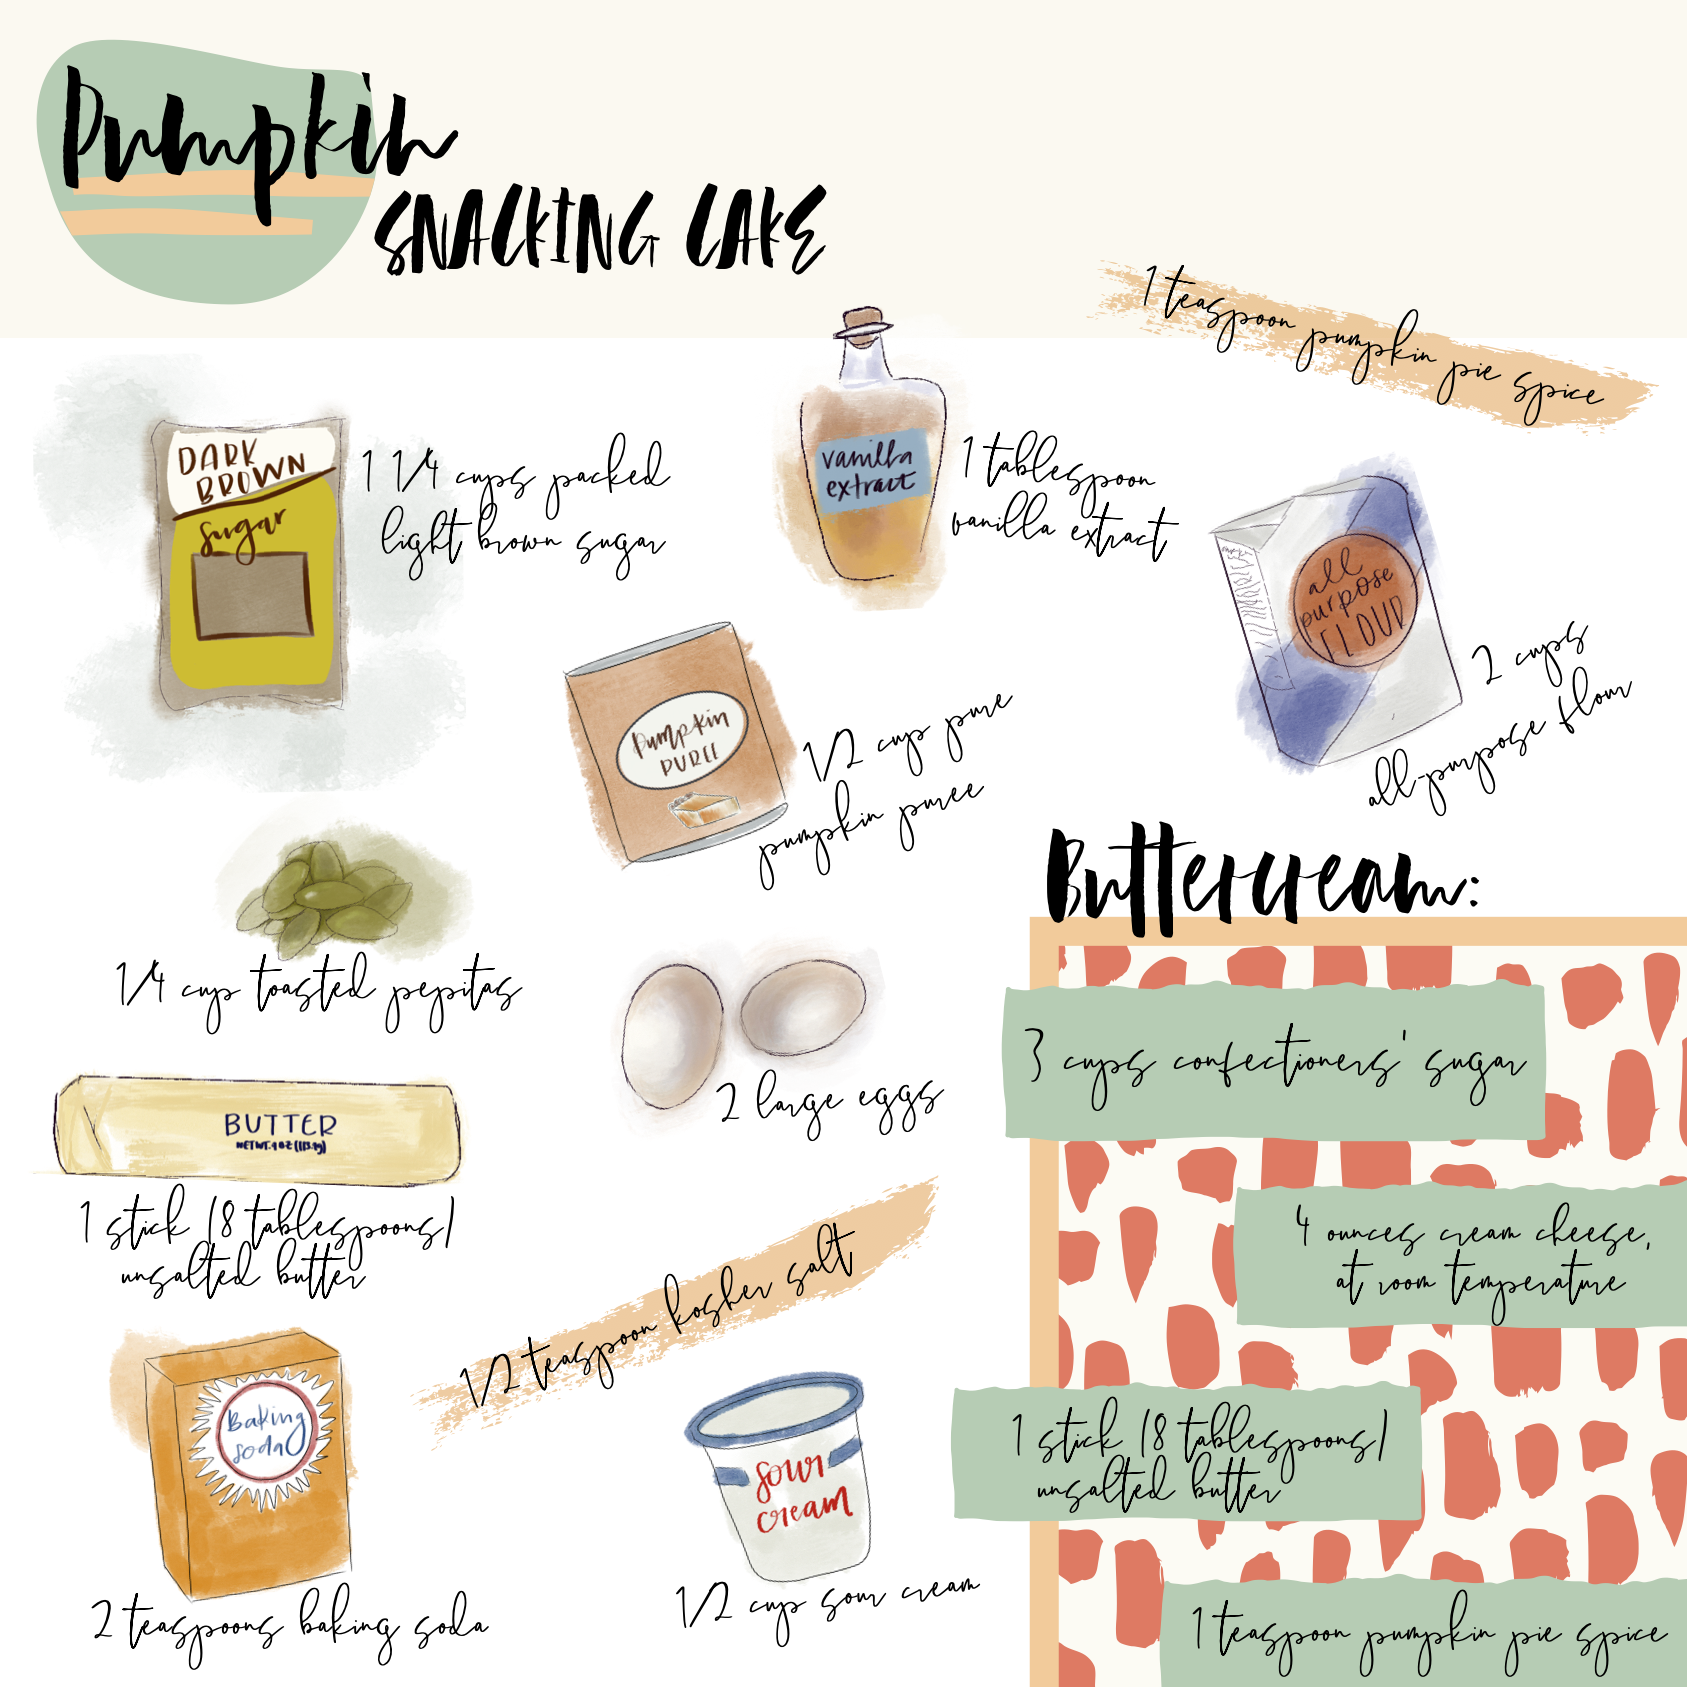 Pumpkin
SNACKING CAKE
1 teaspoon pumpkin pie spice
DARK
BROWN
sugar
1 1/4 cups packed
light brown sugar
vanilla
extract
1 tablespoon
vanilla extract
all
purpose
FLOUR
2 cups
all-purpose flour
Pumpkin
PUREE
1/2 cup pure
pumpkin puree
1/4 cup toasted pepitas
2 large eggs
BUTTER
NET WT. 4 OZ (113.4g)
1 stick (8 tablespoons)
unsalted butter
1/2 teaspoon kosher salt
Baking
soda
2 teaspoons baking soda
sour
cream
1/2 cup sour cream
Buttercream:
3 cups confectioners' sugar
4 ounces cream cheese,
at room temperature
1 stick (8 tablespoons)
unsalted butter
1 teaspoon pumpkin pie spice